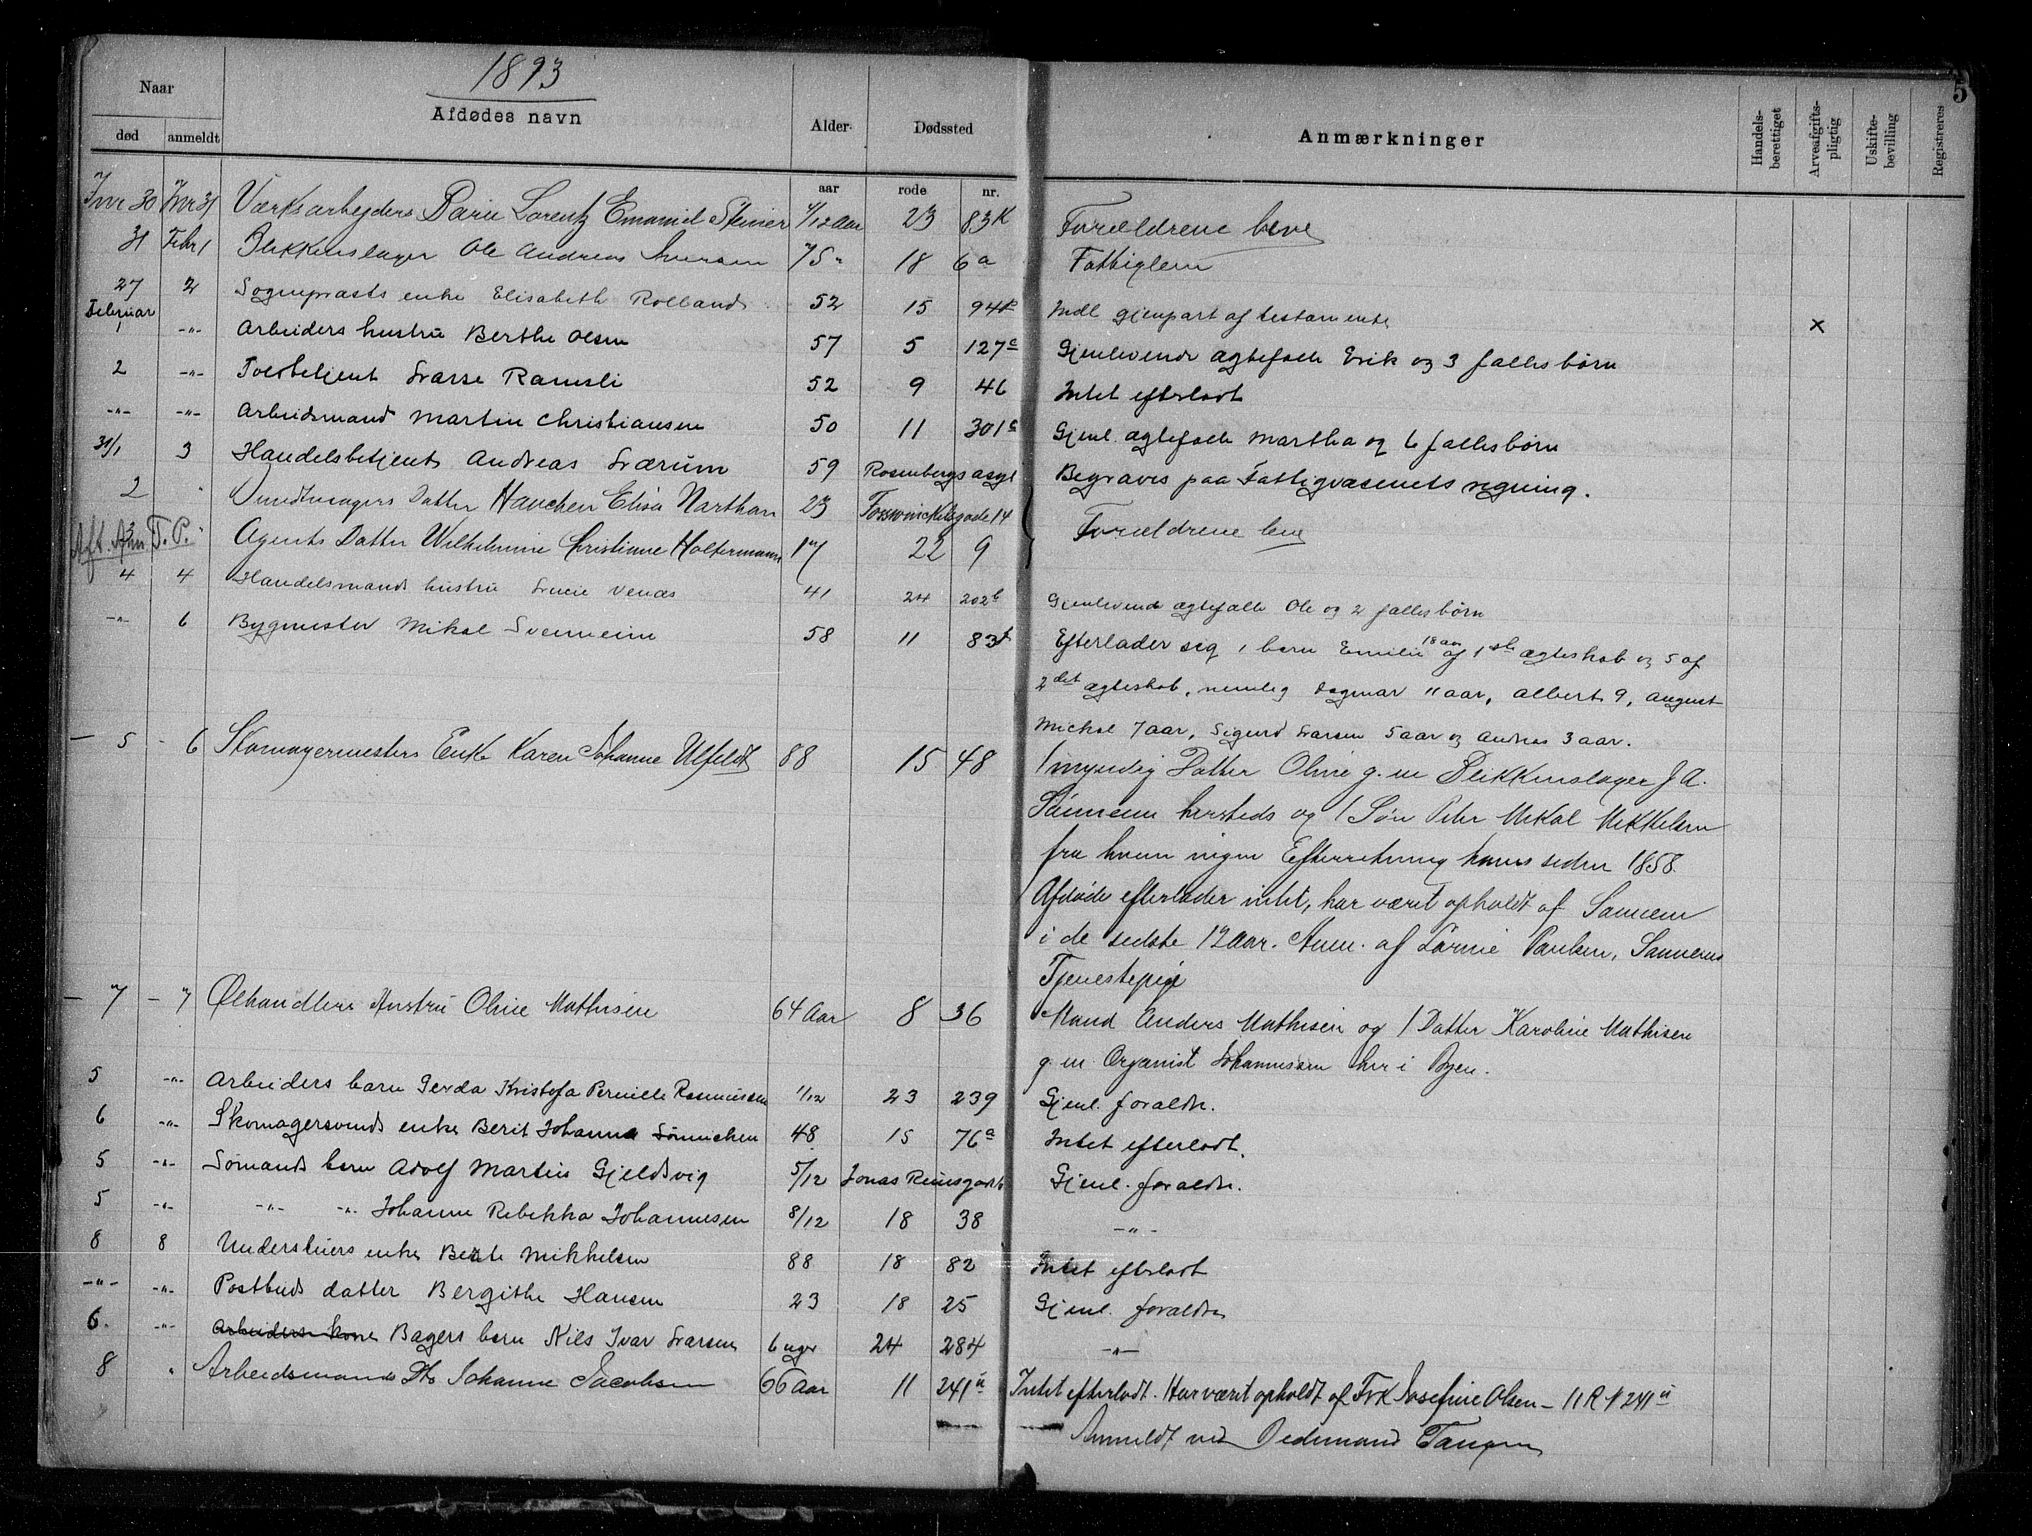 5
1893
Naar
Afdødes navn
Alder
Dødssted
Anmærkninger
Handels-berettiget
Arveafgifts-pligtig
Uskifte-bevilling
Registreres
død
anmeldt
aar
rode
nr.
Jnr 30 Jnr 31 Værksarbejders Lorentz Emanuel 4/12 aar 23 83K Forældrene leve
31 Febr 1 Blikkenslager Ole Andreas Iversen 75 " 18 6a Fattiglem
27 2 Sogneprests enke Elisabeth Rolland 52 15 94 Indl gjenpart af testamente x
Februar
1 -"- Arbeiders hustru Berthe Olsen 57 5 127c Gjenlevende ægtefælle Erik og 3 fællesbørn
2 -"- Toldbetjent Lasse Ramsli 52 9 46 Intet efterladt
-"- -"- Arbeidsmand Martin Christiansen 50 11 301c Gjenl. ægtefælle Martha og 6 fællesbørn
31/1 3 Handelsbetjent Andreas Lærum 59 Rosenbergs asyl Begraves paa Fattigvæsenets regning.
2 " Datter Hanchen Elisa 23 gade 14 Forældrene leve
Aft. Anm. T. P.
Agents Datter Wilhelmine Christiane Holtermann 17 22 9
4 4 Handelsmands hustru Venæs 41 24 202b Gjenlevende ægtefælle Ole og 2 fællesbørn
-"- 6 Bygmester Mikal Svenneim 58 11 83 Efterlader sig 1 barn Emilie 18 aar af 1ste ægteskab og 5 af
2det ægteskab, nemlig Dagmar 11 aar, Albert 9, August
Michal 7 aar, Sigurd Larsen 5 aar og Andreas 3 aar.
- 5 - 6 Skomagermesters Enke Karen Johanne Ulfeldt 88 15 48 1 myndig Datter Oline g. m Blikkenslager J. A.
Sannem hersteds og 1 Søn Peter Mikal Mikkelsen
fra hvem ingen Efterretning haves siden 1858.
Afdøde efterlader intet, har været opholdt af Sannem
i de sidste 12 aar. Anm. af Paulsen, Sannems
Tjenestepige
- 7 - 7 Ølhandlers Hustru Oline Mathisen 64 Aar 8 36 Mand Anders Mathisen og 1 Datter Karoline Mathisen
g. m. Organist Johannessen her i Byen.
5 -"- Arbeiders barn Gerda Kristofa Pernille Rasmussen 1/12 23 239 Gjenl. forældre.
6 -"- Skomagersvends enke Berit Johanna Sönnichen 48 15 76a Intet efterladt.
5 -"- Sømands barn Adolf Martin Gjeldsvig 5/12 Jonas Reinsgade Gjenl. forældre.
5 -"- -"- -"- Johanne Rebekka Johannesen 8/12 18 38 -"-
8 8 Understuers enke Beate Mikkelsen 88 18 82 Intet efterladt
-"- -"- Postbuds datter Bergithe Hansen 23 18 25 Gjenl. forældre
6. -"- Arbeiders kone Bagers barn Nils Ivar Larsen 6 uger 24 284 -"-
8 " Arbeidsmands Johanne Jacobsen 66 Aar 11 241ii Intet efterladt. Har været opholdt af Frk Josefine Olsen - 11 R N 241ii
Anmeldt ved Bedemand Tangen